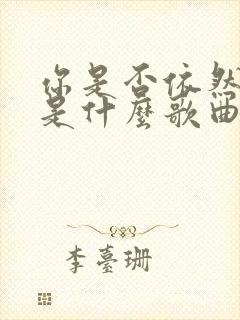 你是否依然
是什麼歌曲
李臺珊